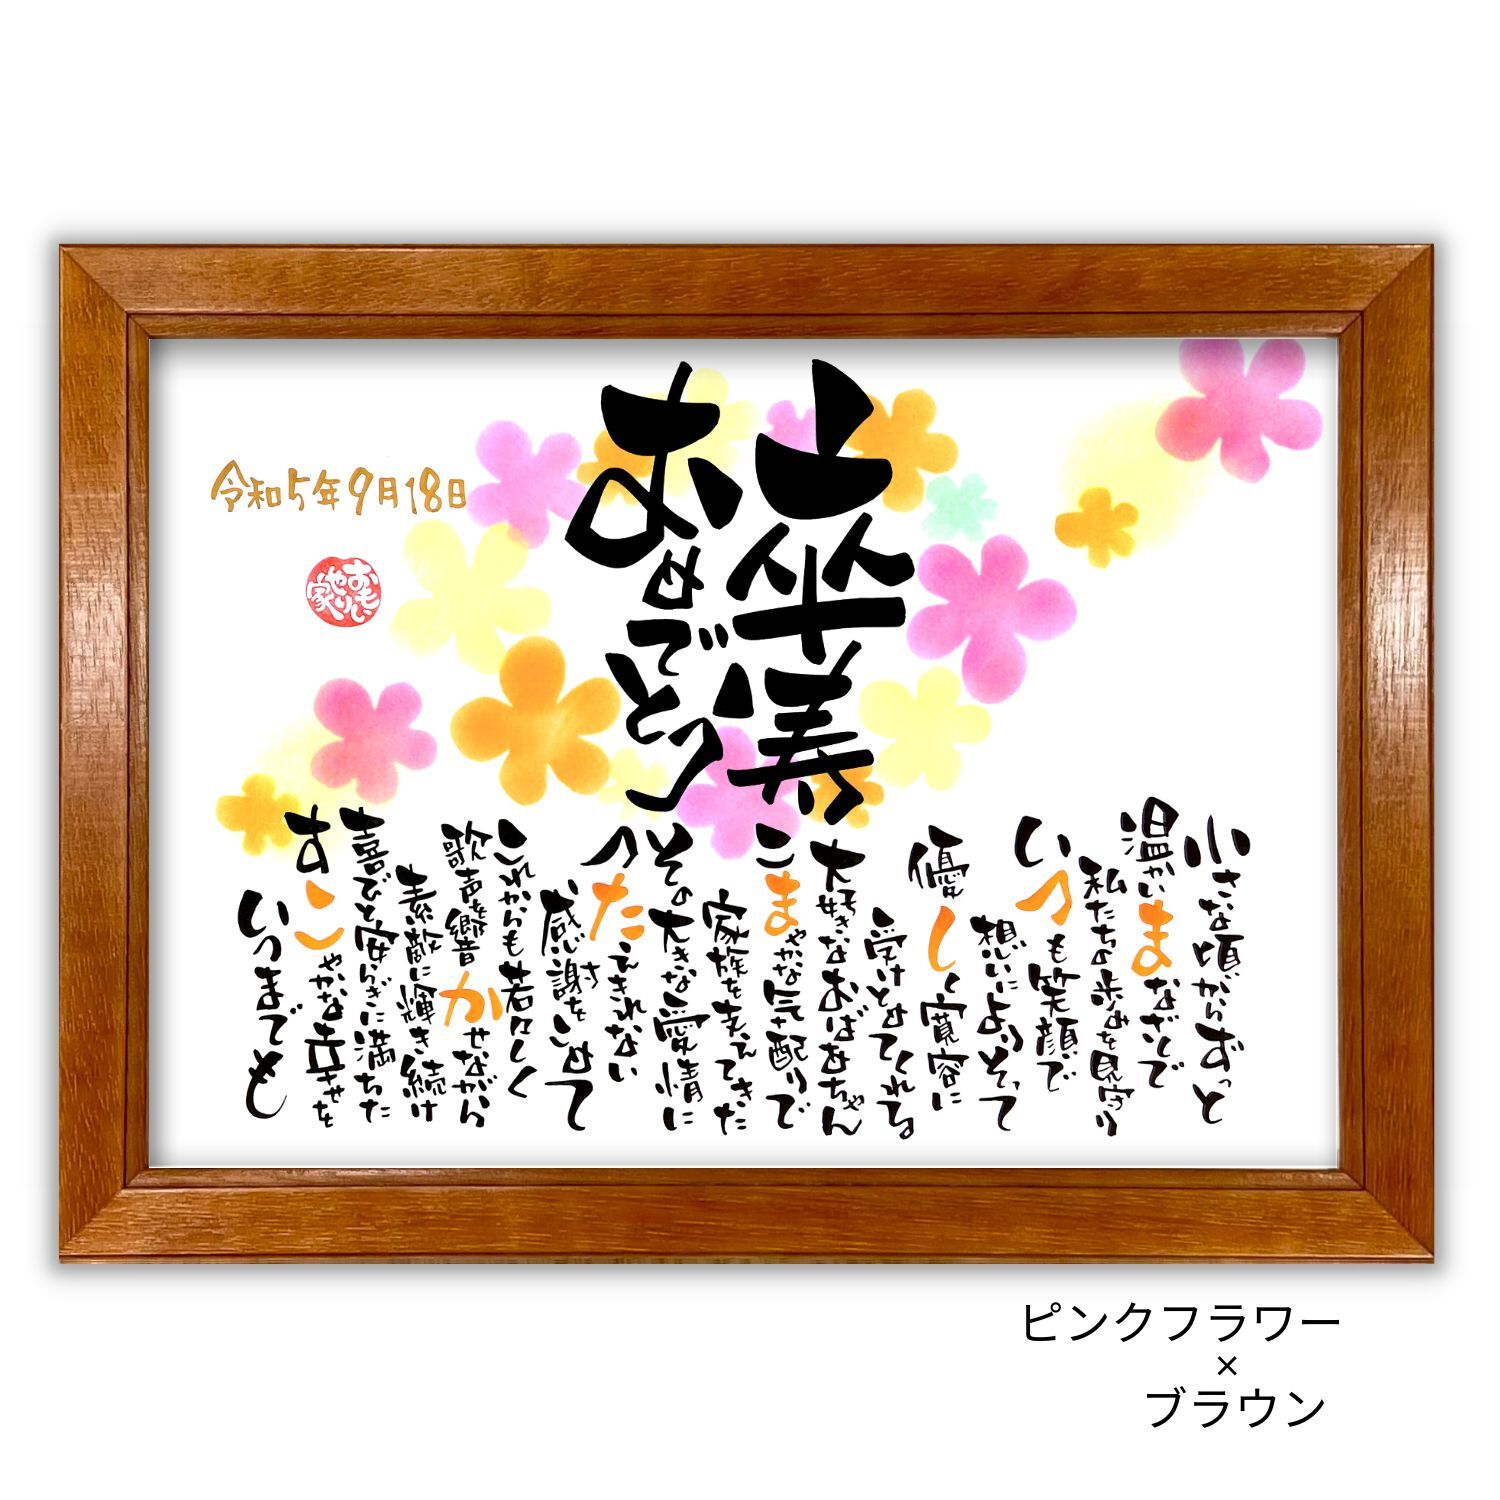 卒寿
おめでとう
令和5年9月18日
おもい
やり
家
小さな頃からずっと
温かいまなざしで
私たちの歩みを見守り
いつも笑顔で
想いによりそって
優しく寛容に
受けとめてくれる
大好きなおばあちゃん
こまやかな気配りで
家族を支えてきた
その大きな愛情に
つたえきれない
感謝をこめて
これからも若々しく
歌声を響かせながら
素敵に輝き続け
喜びと安らぎに満ちた
すこやかな幸せを
いつまでも
ピンクフラワー
×
ブラウン